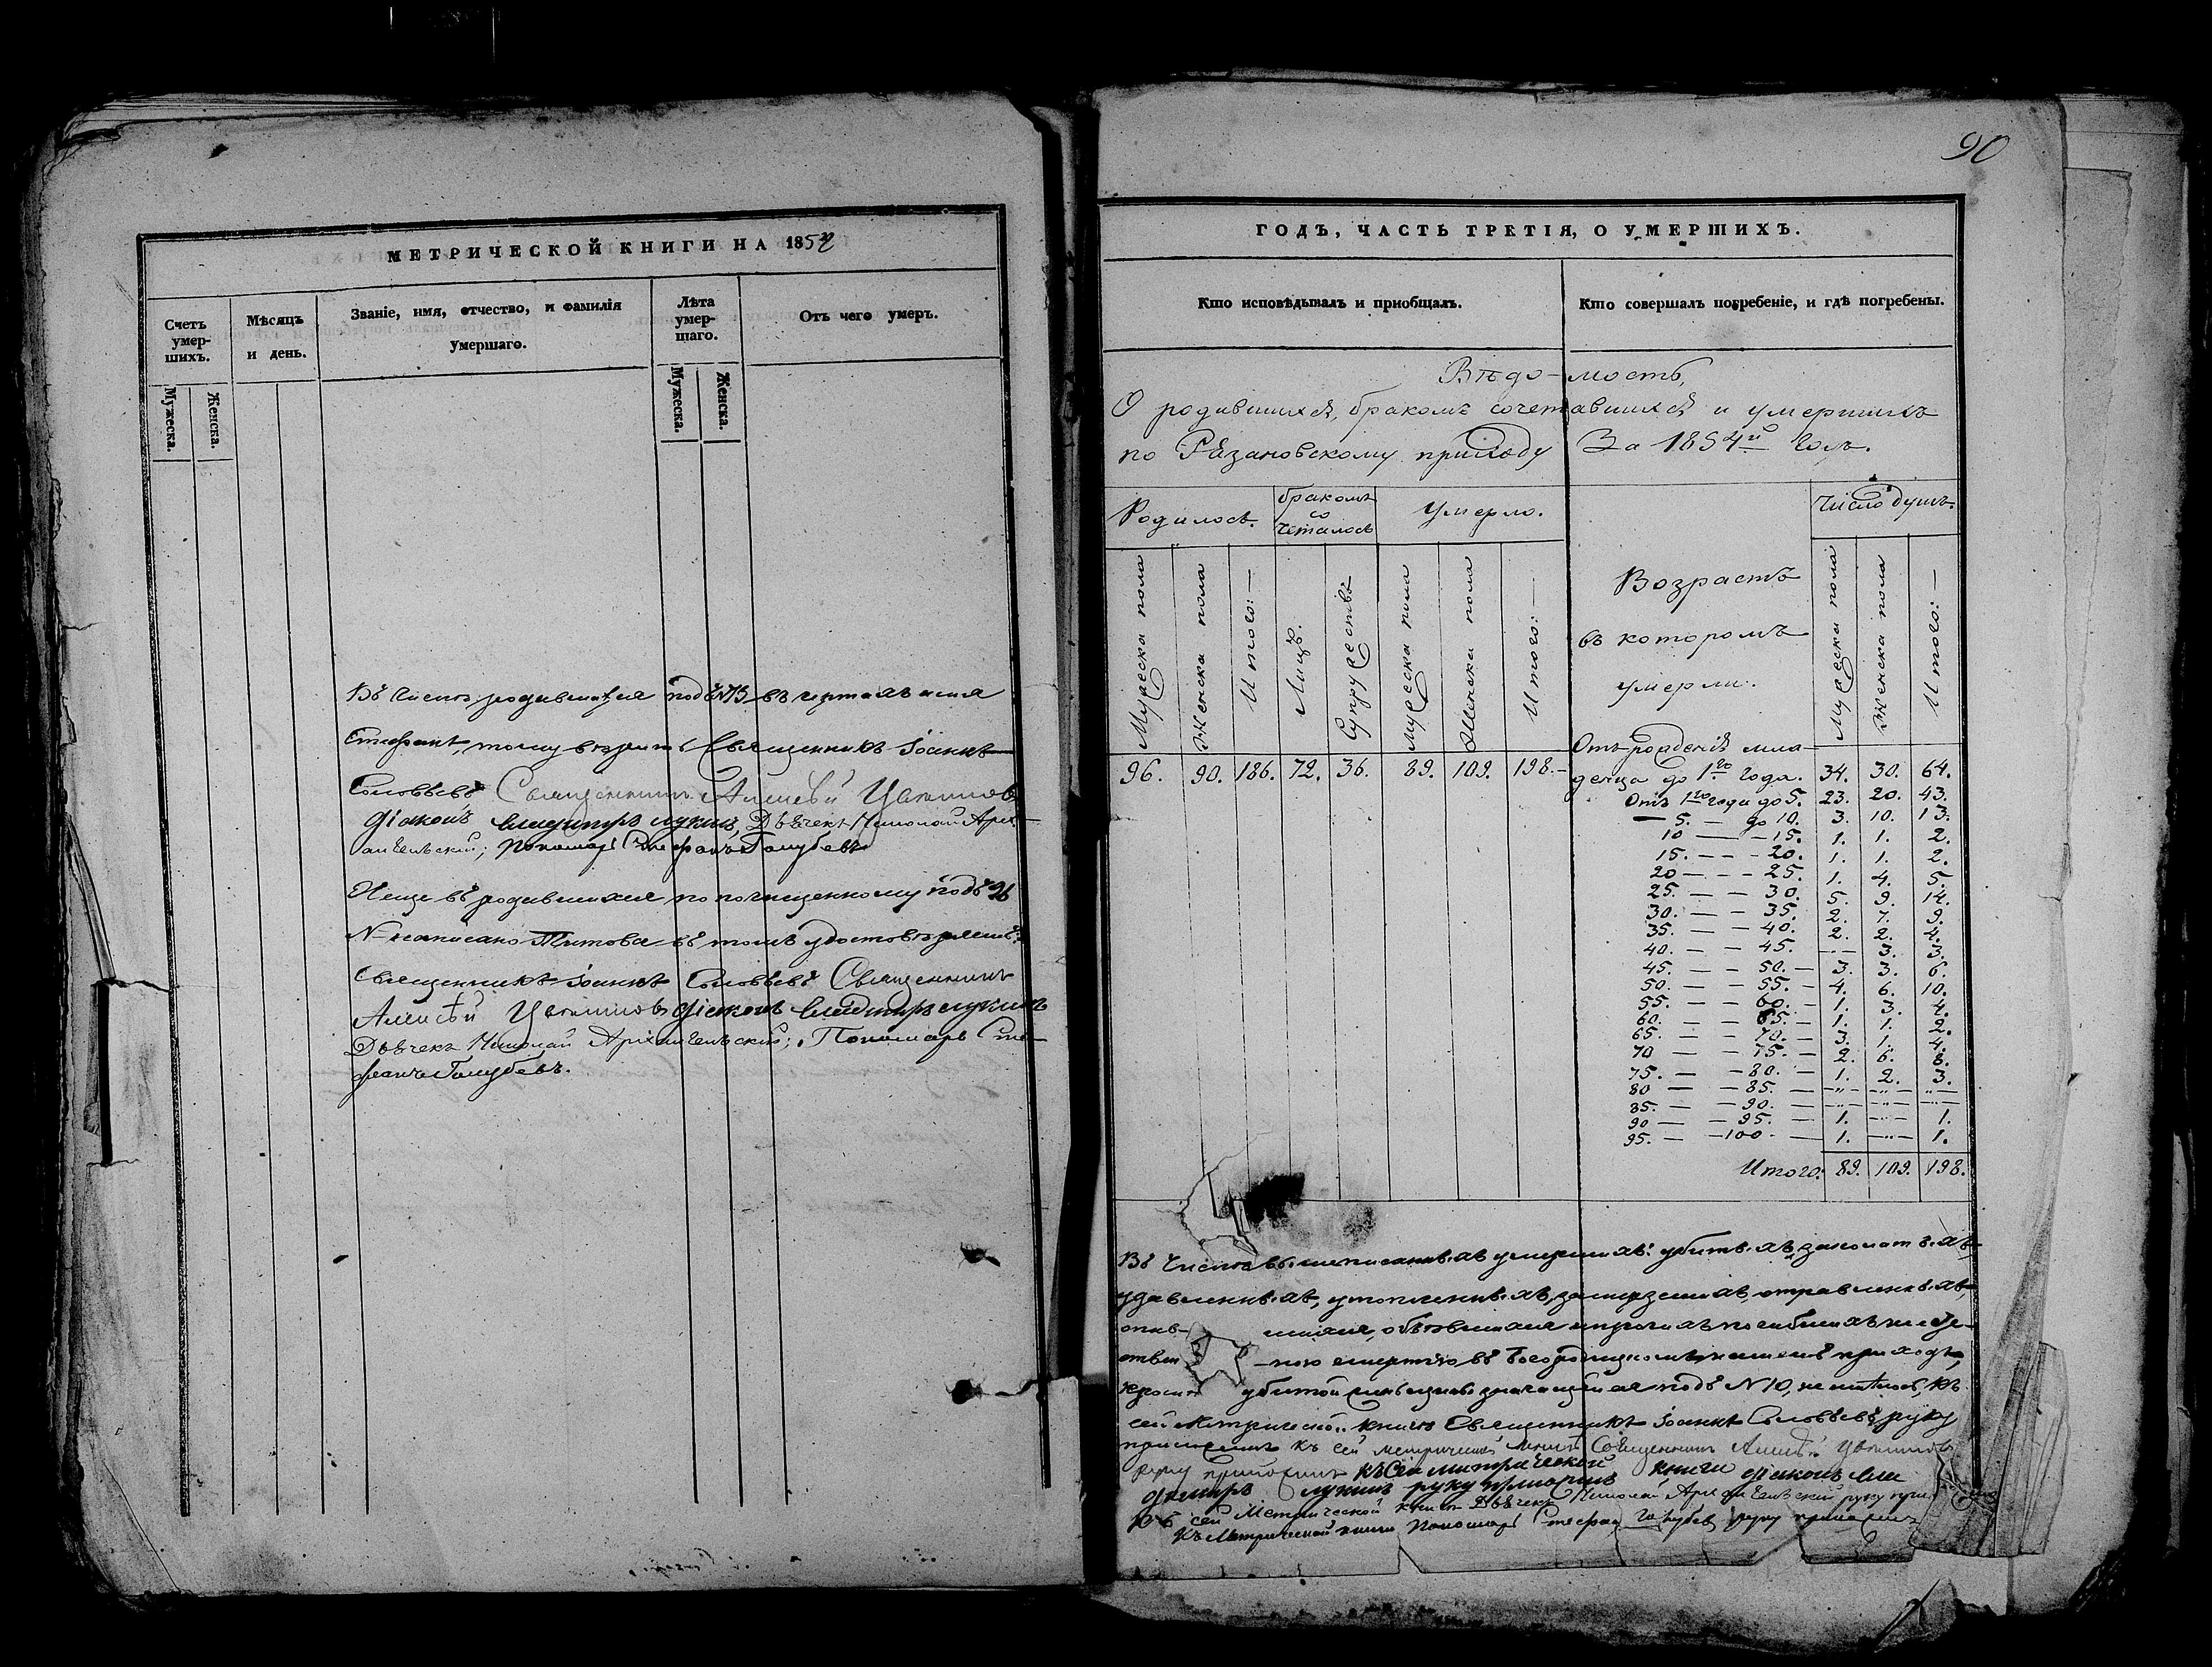 МЕТРИЧЕСКОЙ КНИГИ НА 1854
Счетъ умер-шихъ.
Мѣсяцъ и день.
Званіе, имя, отчество, и фамилія умершаго.
Лѣта умер-шаго.
Отъ чего умеръ.
Мужеска.
Женска.
Мужеска.
Женска.
Въ числѣ родившихся подъ №73 въ чертахъ имя
Стефанъ, тому вѣрить Священникъ Іоаннъ
Соловьевъ Священникъ Алексѣй
Діаконъ Владимиръ Лукинъ, Дьячекъ Николай Арх-
ангельскій; Пономарь Стефанъ Голубевъ
И еще въ родившихся по почищенному подъ 96
№ написано Титова въ томъ удостовѣряемъ:
Священникъ Іоаннъ Соловьевъ Священникъ
Алексѣй Діаконъ Владимиръ Лукинъ
Дьячекъ Николай Архангельскій; Пономарь Сте-
фанъ Голубевъ.
90
ГОДЪ, ЧАСТЬ ТРЕТІЯ, О УМЕРШИХЪ.
Кто исповѣдывалъ и приобщалъ.
Кто совершалъ погребеніе, и гдѣ погребены.
Вѣдо-мость,
О родившихся, бракомъ сочетавшихся и умершихъ
по Рязановскому приходу За 1854й Годъ.
Родилось.
бракомъ со четалось
Умерло.
Возрастъ въ которомъ умерли.
Число душъ.
Мужеска пола
Женска пола
Итого:—
Лицъ.
Супружествъ
Мужеска пола
Женска пола
Итого:—
Мужеска пола
Женска пола
Итого:—
96. 90. 186. 72. 36. 89. 109. 198.—
Отъ рожденія мла-
денца до 1го года. 34. 30. 64.
Отъ 1го года до 5. 23. 20. 43.
— 5. — до 10. 3. 10. 13.
10 — — 15. 1. 1. 2.
15. — — 20. 1. 1. 2.
20 — — 25. 1. 4. 5.
25. — — 30. 5. 9. 14.
30. — — 35. 2. 7. 9.
35. — — 40. 2. 2. 4.
40. — — 45. — 3. 3.
45. — — 50. — 3. 3. 6.
50. — — 55. — 4. 6. 10.
55. — — 60. — 1. 3. 4.
60. — — 65. — 1. 1. 2.
65. — — 70. — 3. 1. 4.
70 — — 75. — 2. 6. 8.
75. — — 80. — 1. 2. 3.
80 — — 85. — —"— —"— —"—
85. — — 90. — —"— —"— —"—
90 — — 95. — 1. —"— 1.
95. — — 100. — 1. —"— 1.
Итого: 89. 109. 198.
Въ числѣ вышеписанныхъ умершихъ: убитыхъ, заколотыхъ,
удавленныхъ, утопленныхъ, замерзшихъ, отравленныхъ,
опив- шихся, объѣвшихся и прочихъ погибшихъ не есте-
ствен -ною смертію въ Богородицкомъ нашемъ приходѣ,
кромѣ убитой значащейся подъ №10, не имѣлось, къ
сей Метрической книгѣ Священникъ Іоаннъ Соловьевъ руку
приложилъ Къ сей метрической книгѣ Священникъ Алексѣй
руку приложилъ Къ сей Митрической книги діаконъ Вла
димиръ Лукинъ руку приложилъ
Къ сей Метрической книгѣ Дьячекъ Николай Архангельскій руку при.
Къ Метрической книги Пономарь Стефанъ Голубевъ руку приложилъ